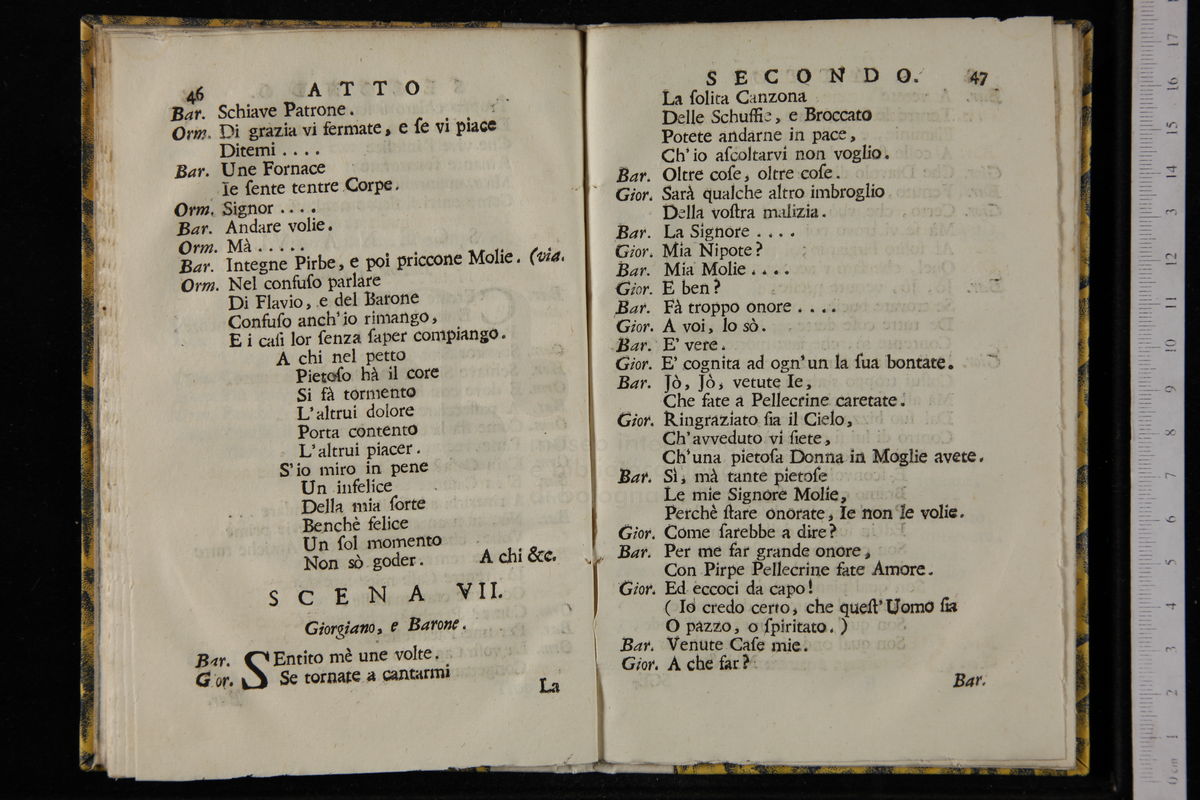 46 ATTO
Bar. Schiave Patrone.
Orm. Di grazia vi fermate, e ſe vi piace
Ditemi ....
Bar. Une Fornace
Ie ſente tentre Corpe.
Orm. Signor ....
Bar. Andare volie.
Orm. Mà .....
Bar. Integne Pirbe, e poi priccone Molie. (via.
Orm. Nel confuſo parlare
Di Flavio, e del Barone
Confuſo anch'io rimango,
E i caſi lor ſenza ſaper compiango.
A chi nel petto
Pietoſo hà il core
Si fà tormento
L'altrui dolore
Porta contento
L'altrui piacer.
S'io miro in pene
Un infelice
Della mia ſorte
Benchè felice
Un ſol momento
Non sò goder. A chi &c.
SCENA VII.
Giorgiano, e Barone.
Bar. SEntito mè une volte.
Gior. Se tornate a cantarmi
La
SECONDO. 47
La ſolita Canzona
Delle Schuffie, e Broccato
Potete andarne in pace,
Ch'io aſcoltarvi non voglio.
Bar. Oltre coſe, oltre coſe.
Gior. Sarà qualche altro imbroglio
Della voſtra malizia.
Bar. La Signore ....
Gior. Mia Nipote?
Bar. Mia Molie ....
Gior. E ben?
Bar. Fà troppo onore ....
Gior. A voi, lo sò.
Bar. E' vere.
Gior. E' cognita ad ogn'un la ſua bontate.
Bar. Jò, Jò, vetute Ie,
Che fate a Pellecrine caretate.
Gior. Ringraziato ſia il Cielo,
Ch'avveduto vi ſiete,
Ch'una pietoſa Donna in Moglie avete.
Bar. Sì, mà tante pietoſe
Le mie Signore Molie,
Perchè ſtare onorate, Ie non le volie.
Gior. Come ſarebbe a dire?
Bar. Per me far grande onore,
Con Pirpe Pellecrine fate Amore.
Gior. Ed eccoci da capo!
( Io credo certo, che queſt'Uomo ſia
O pazzo, o ſpiritato. )
Bar. Venute Caſe mie.
Gior. A che far?
Bar.